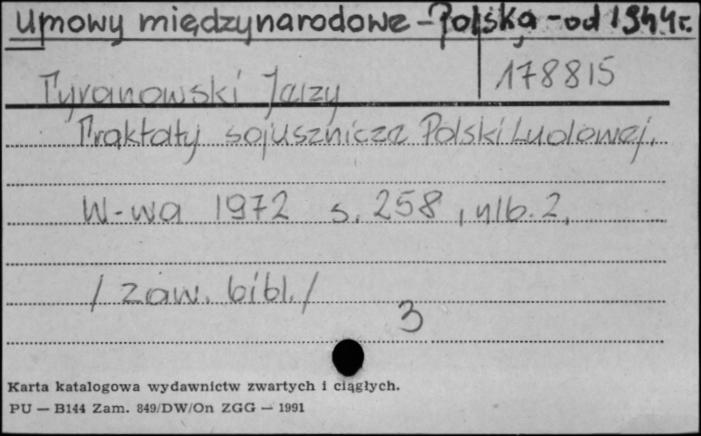 Umowy międzynarodowe - Polska - od 1944 r.
178815
Tyranowski Jerzy
Traktaty sojusznicze Polski Ludowej.
W-wa 1972 s. 258, nlb. 2.
/ zaw. bibl. /
3
Karta katalogowa wydawnictw zwartych i ciągłych.
PU — B144 Zam. 849/DW/On ZGG — 1991